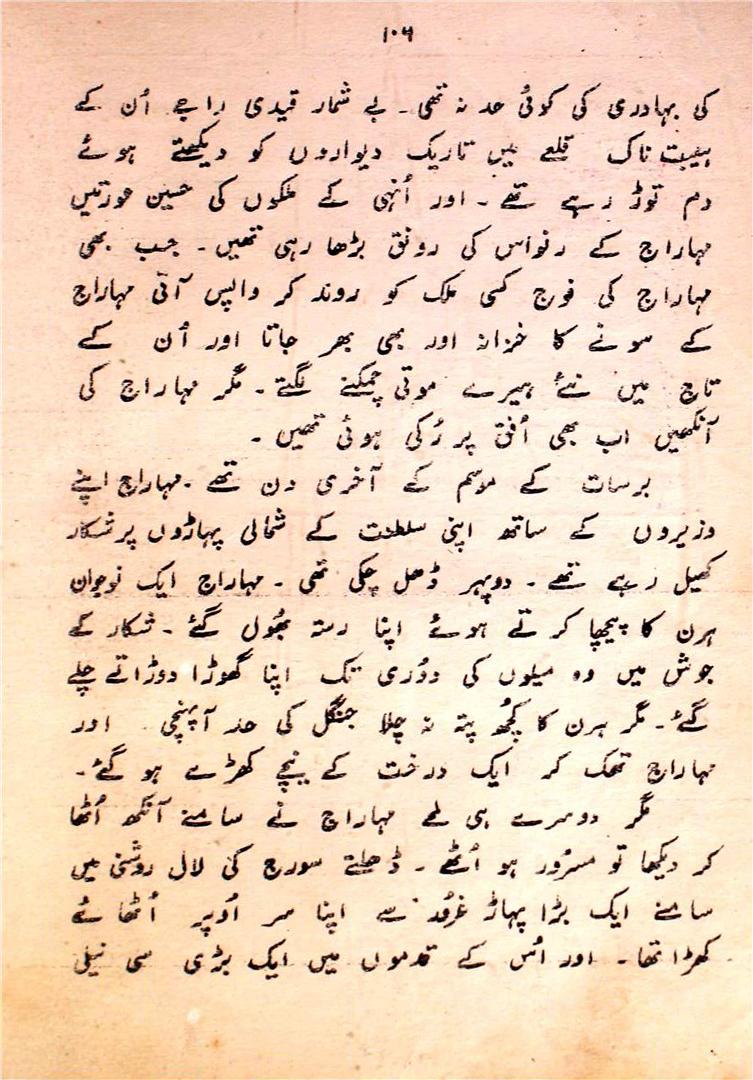 ۱۰۶
کی بہادری کی کوئی حد نہ تھی۔ بے شمار قیدی راجے اُن کے
ہیبت ناک قلعے میں تاریک دیواروں کو دیکھتے ہوئے
دم توڑ رہے تھے۔ اور اُنہی کے ملکوں کی حسین عورتیں
مہاراج کے رنواس کی رونق بڑھا رہی تھیں۔ جب بھی
مہاراج کی فوج کسی ملک کو روند کر واپس آتی مہاراج
کے سونے کا خزانہ اور بھی بھر جاتا اور اُن کے
تاج میں نئے ہیرے موتی چمکنے لگتے۔ مگر مہاراج کی
آنکھیں اب بھی اُفق پر رُکی ہوئی تھیں۔
برسات کے موسم کے آخری دن تھے۔ مہاراج اپنے
وزیروں کے ساتھ اپنی سلطنت کے شمالی پہاڑوں پر شکار
کھیل رہے تھے۔ دوپہر ڈھل چکی تھی۔ مہاراج ایک نوجوان
ہرن کا پیچھا کرتے ہوئے اپنا رستہ بھُول گئے۔ شکار کے
جوش میں وہ میلوں کی دوُری تک اپنا گھوڑا دوڑاتے چلے
گئے۔ مگر ہرن کا کچُھ پتہ نہ چلا جنگل کی حد آ پہنچی اور
مہاراج تھک کر ایک درخت کے نیچے کھڑے ہو گئے۔
مگر دوسرے ہی لمحے مہاراج نے سامنے آنکھ اُٹھا
کر دیکھا تو مسرُور ہو اُٹھے۔ ڈھلتے سورج کی لال روشنی میں
سامنے ایک بڑا پہاڑ غرُور سے اپنا سر اُوپر اُٹھائے
کھڑا تھا۔ اور اُس کے قدموں میں ایک بڑی سی نیلی